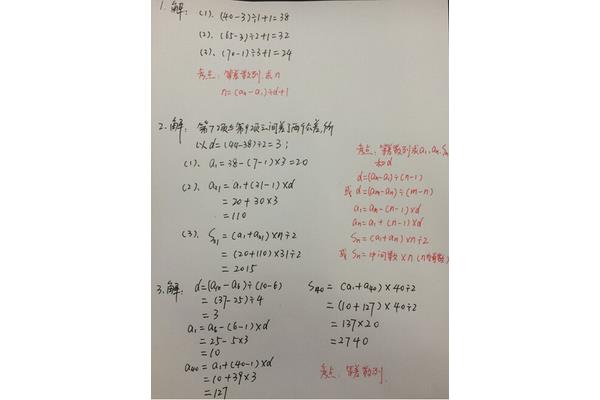 1. 解: (1). (40-3)÷1+1=38
(2). (65-3)÷2+1=32
(3). (70-1)÷3+1=24
考点: 等差数列, 求n
n=(an-a1)÷d+1
2. 解: 第7项与第9项之间差了两个公差, 所
以d=(44-38)÷2=3;
(1). a1=38-(7-1)×3=20
(2). a31=a1+(31-1)×d
=20+30×3
=110
(3). S31=(a1+a31)×n÷2
=(20+110)×31÷2
=2015
考点: 等差数列求a1, an, Sn
和d
d=(an-a1)÷(n-1)
或d=(am-an)÷(m-n)
a1=an-(n-1)×d
an=a1+(n-1)×d
Sn=(a1+an)×n÷2
或 Sn=中间数×n (n为奇数)
3. 解: d=(a10-a6)÷(10-6)
=(37-25)÷4
=3
a1=a6-(6-1)×d
=25-5×3
=10
a40=a1+(40-1)×d
=10+39×3
=127
S40=(a1+a40)×40÷2
=(10+127)×40÷2
=137×20
=2740
考点: 等差数列.